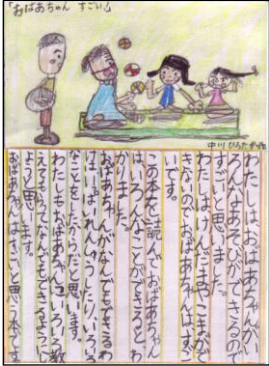 「おばあちゃん すごい」
中川ひろたか作
わたしは、おばあちゃんがい
ろんなあそびができるので
すごいと思いました。
わたしは、けんだまやこまがで
きないのでおばあちゃんはすご
いです。
この本を読んで、おばあちゃん
は、いろんなことができるとわ
かりました。
おばあちゃんがなんでもできるわ
けは、いっぱいれんしゅうしたり、いろいろ
なことをしたからだと思います。
わたしもおばあちゃんにいろいろ教
えてもらってなんでもできるようにし
ようと思います。
おばあちゃんはすごいと思う本です